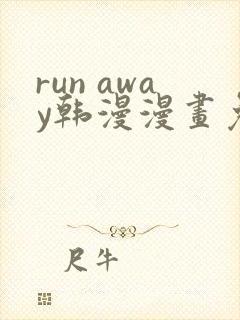 run awa
y韩漫漫畫
尺牛